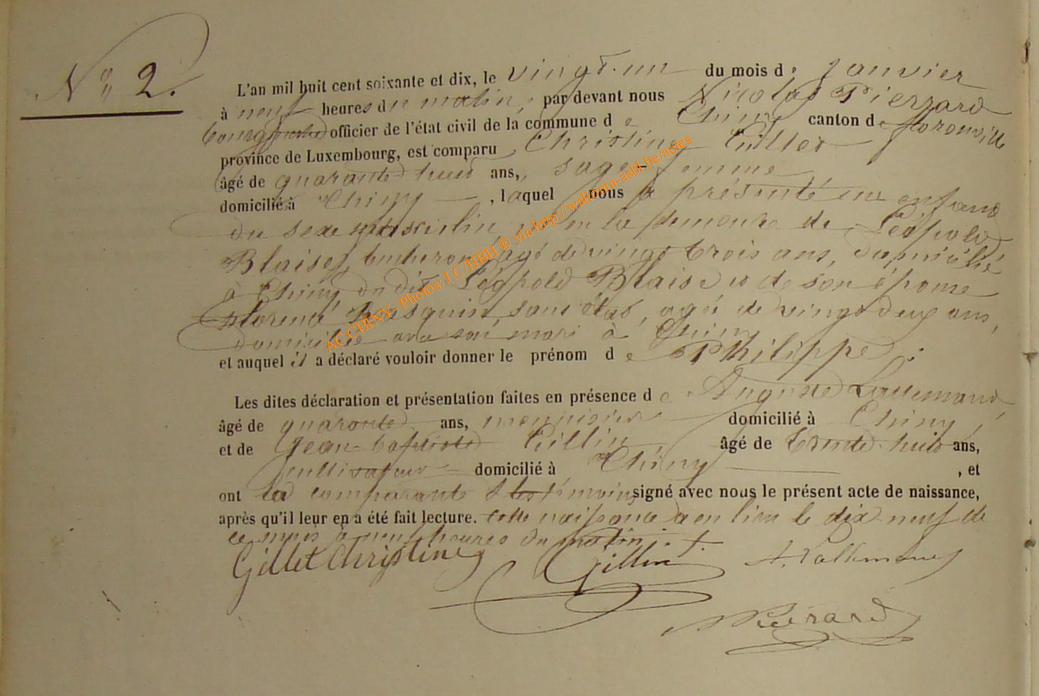 N° 2.
L'an mil huit cent soixante et dix, le vingt-un du mois de Janvier
à neuf heures du matin, par devant nous Nicolas Pierrard
bourgmestre officier de l'état civil de la commune de Chiny canton de Florenville
province de Luxembourg, est comparu Christine Gillet
âgé de quarante huit ans, sage-femme
domicilié à Chiny, laquel nous a présenté un enfant
du sexe masculin, né en la demeure de Léopold
Blaise, bucheron, agé de vingt trois ans, domicilié
à Chiny du dit Léopold Blaise et de son épouse
Florence Pasquin, sans état, agée de vingt deux ans,
domiciliée avec son mari à Chiny
et auquel il a déclaré vouloir donner le prénom de Philippe.
Les dites déclaration et présentation faites en présence de Auguste Lallemand,
âgé de quarante ans, menuisier domicilié à Chiny,
et de Jean-Baptiste Gillin, âgé de trente-huit ans,
cultivateur domicilié à Chiny, et
ont la comparante & les témoins signé avec nous le présent acte de naissance,
après qu'il leur en a été fait lecture. Cette naissance a eu lieu le dix-neuf de
ce mois à neuf heures du matin.
Gillet Christine Gillin A. Lallemand
Pierrard
ACCHINX- Photos J C HERI © site http://wallonica.and.be/users